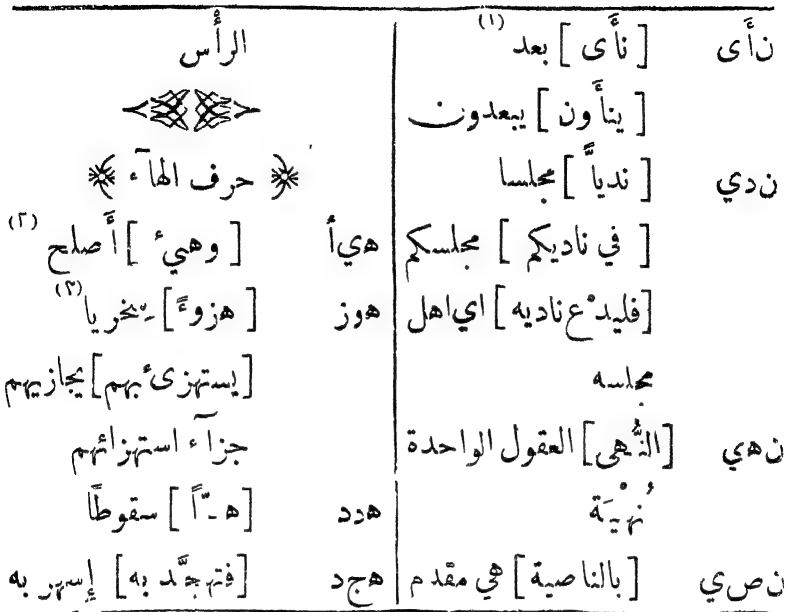 ن أ ى [نأى] بعد (١)
[ينأون] يبعدون
ن د ي [ندياًّ] مجلسا
[في ناديكم] مجلسكم
[فليدْع ناديه] اي اهل
مجلسه
ن ه ي [النُّهى] العقول الواحدة
نُهْيَة
ن ص ي [بالناصية] هي مقدم
الرأس
حرف الهآء
ه ي أ [وهيء] أَصلح (٢)
ه و ز [هزوءً] سِخريا (٣)
[يستهزىء بهم] يجازيهم
جزآء استهزائهم
ه د د [هدّاً] سقوطًا
ه ج د [فتهجَّد به] إسهر به